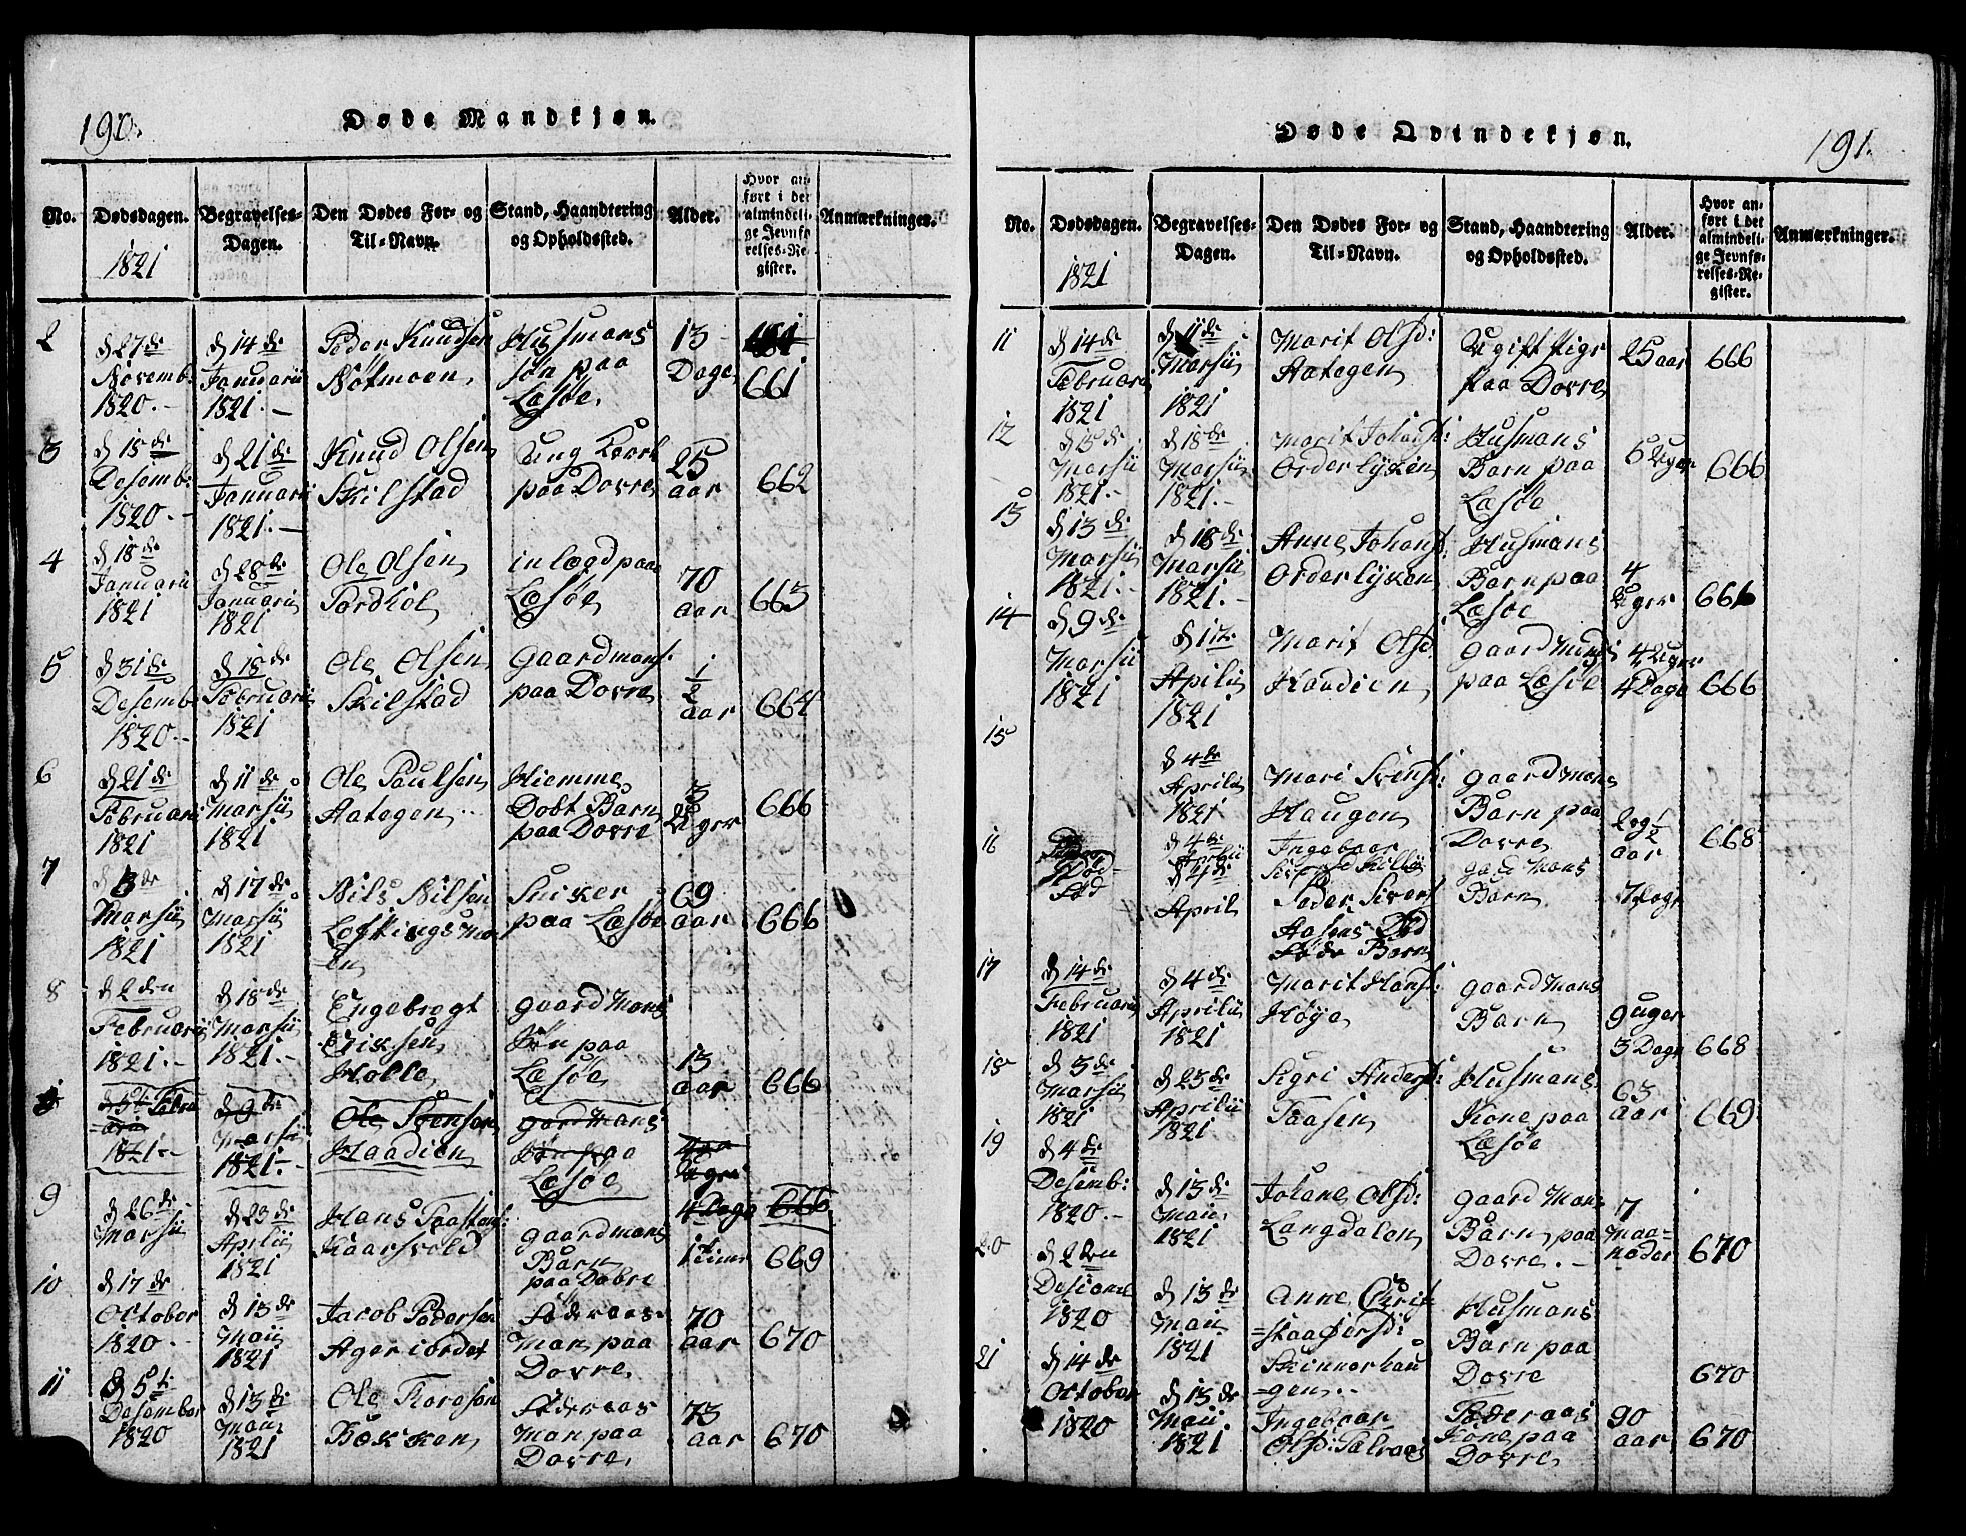 190.
Døde Mandkjøn.
No.
Dødsdagen.
1821
Begravelses-
Dagen.
Den Dødes For- og
Til-Navn.
Stand, Haandtering
og Opholdssted.
Alder.
Hvor an-
ført i det
almindeli-
ge Jevnfø-
relses-Re-
gister.
Anmærkninger.
2
d 27de
Novemb:
1820.-
d 14de
Januarii
1821.-
Peder Knudsen
Nötmoen
Husmans
sön paa
Læsöe.
13
Dage
661
3
d 15de
Desemb:
1820.-
d 21de
Januarii
1821.-
Knud Olsen
Skilstad
Ung Karl
paa Dovre
25
aar
662
4
d 18de
Januarii
1821
d 28de
Januarii
1821
Ole Olsen
Tordhol
in lægd paa
Læsöe
70
aar
663
5
d 31de
Desemb:
1820.-
d 18de
Februarii
1821
Ole Olsen
Skilstad
gaardmans:
paa Dovre
1/2
aar
664
6
d 21de
Februari
1821
d 11de
Marsii
1821
Ole Paulsen
Aategen
Hiemme
Döbt Barn
paa Dovre
3
Uger
666
7
d 3de
Marsii
1821
d 17de
Marsii
1821
Nils Nilsen
Loftings Mo-
en
Sniker
paa Læsöe
69
aar
666
8
d 2den
Februarii
1821.-
d 18de
Marsii
1821.-
Engebregt
Eriksen
Holle
gaard Mans
Sön paa
Læsöe
13
aar
666
1821.-
d 9de
Marsii
1821.-
Ole Svensen
Haadien
gaard Mans
Sön paa
Læsöe
Uger
4 Dage
666
9
d 26de
Marsii
d 23de
Aprilii
1821
Hans Paastens:
Kaarsvold
gaardmans
Barn
paa Dovre
1 time
669
10
d 17de
Octobor
1820.-
d 13de
Maii
1821
Jacob Pedersen
Ager iordet
Föderaas-
Man paa
Dovre.
70
aar
670
11
d 5te
Desember
1820
d 13de
Maii
1821
Ole Toresen
Bækken
Föderaas
Man paa
Dovre.
73
aar
670
191.
Døde Qvindekjøn.
No.
Dødsdagen.
1821
Begravelses-
Dagen.
Den Dødes For- og
Til-Navn.
Stand, Haandtering
og Opholdssted.
Alder.
Hvor an-
ført i det
almindeli-
ge Jevnfø-
relses-Re-
gister.
Anmærkninger.
11
d 14de
Februari
1821
d 11de
Marsii
1821
Marit Olsd:
Aategen
Ugift Pige
paa Dovre
25 aar
666
12
d 13de
Marsii
1821.-
d 18de
Marsii
1821.-
Marit Johansd:
Orderlyken
Husmans
Barn paa
Læsöe
5 Uger
666
13
d 13de
Marsii
1821.-
d 18de
Marsii
1821.-
Anne Johansd:
Orderlyken
Husmans
Barn paa
Læsöe
4
Uger
666
14
d 9de
Marsii
1821
d 1te
Aprilii
1821
Marit Olsd:
Haadien
gaard Mans
paa Læsöe
4 Uger
4 Dage
666
15
d 4de
Aprilii
1821
Mari Svensd:
Haugen
gaard Mans
Barn paa
Dovre
2 og 1/2
aar
668
16
Död-
föd
d 4de
Aprilii
d 4de
April
Ingeboer
Peder Sivert
Aasens Död
föde Barn
gaard Mans
Barn
7 Dage
17
d 14de
Februarii
1821
d 4de
Aprilii
1821
Marit Hansd:
Höye
gaard Mans
Barn
9 uger
3 Dage
668
18
d 3de
Marsii
1821
d 23de
Aprilii
1821
Sigri Andersd:
Taasen
Husmans
Kone paa
Læsöe
63
aar
669
19
d 4de
Desemb:
1820.-
d 13de
Maii
1821
Johane Olsd:
Langdalen
gaard Mans
Barn paa
Dovre.-
7
Maa-
neder
670
20
d 2den
1820
d 13de
Maii
1821
Anne Christ
=staa Persd:
Skinnerhau
=gen..
Husmans
Barn paa
Dovre
670
21
d 14de
Octobor
1820
d 13de
Maii
1821
Ingeboer
Olsd:
Föderaas
Kone paa
Dovre
90
aar
670